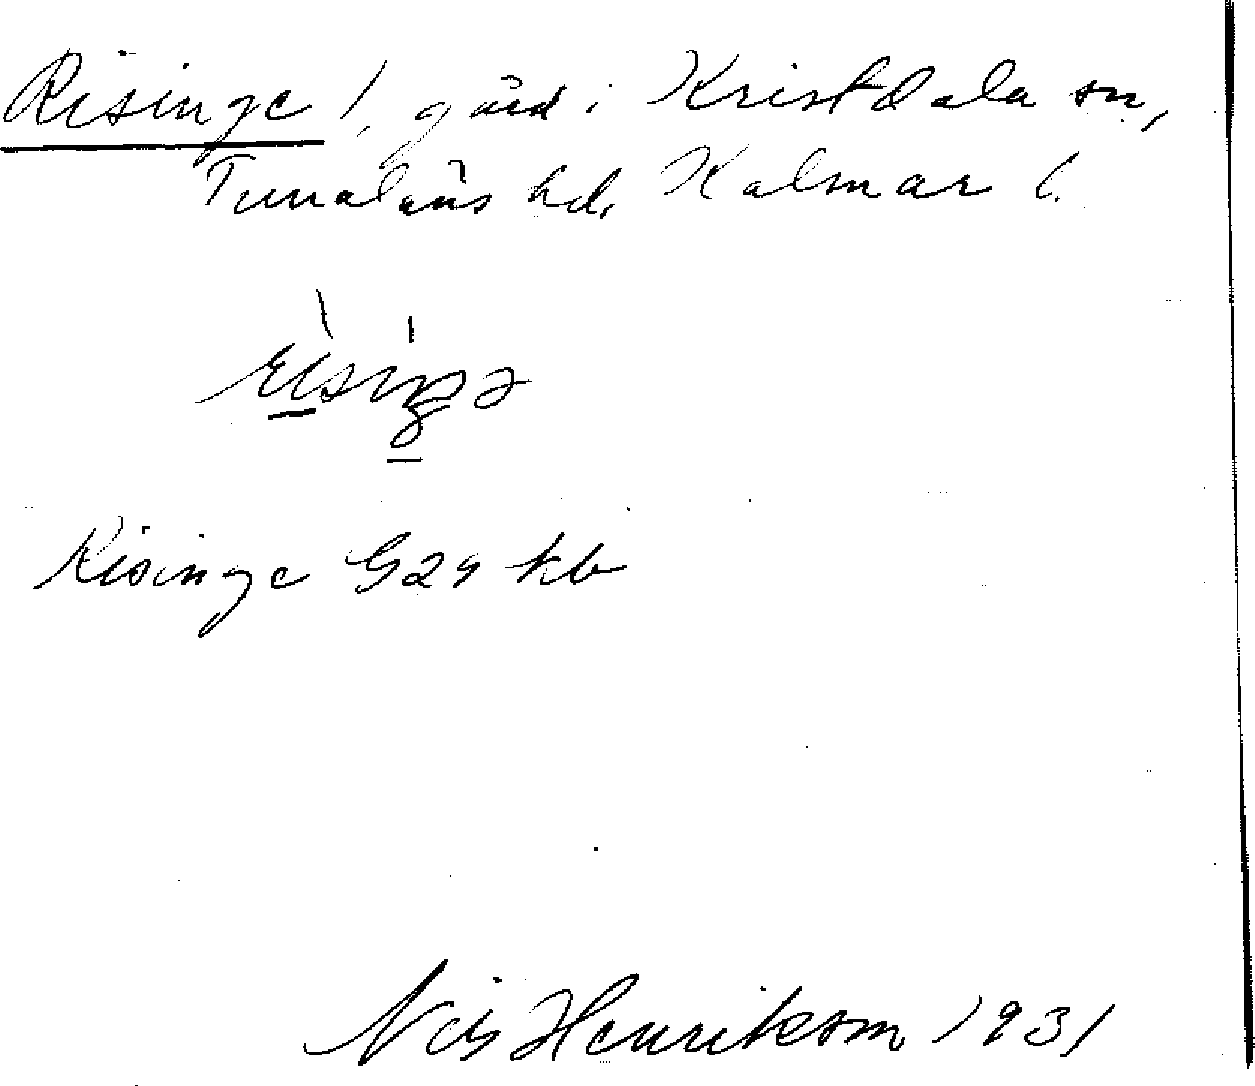 Risinge 1, gård i Kristdala sn,
Tunaläns hd, Kalmar l.
Risinge G29 kb
Nils Henriksom 1931